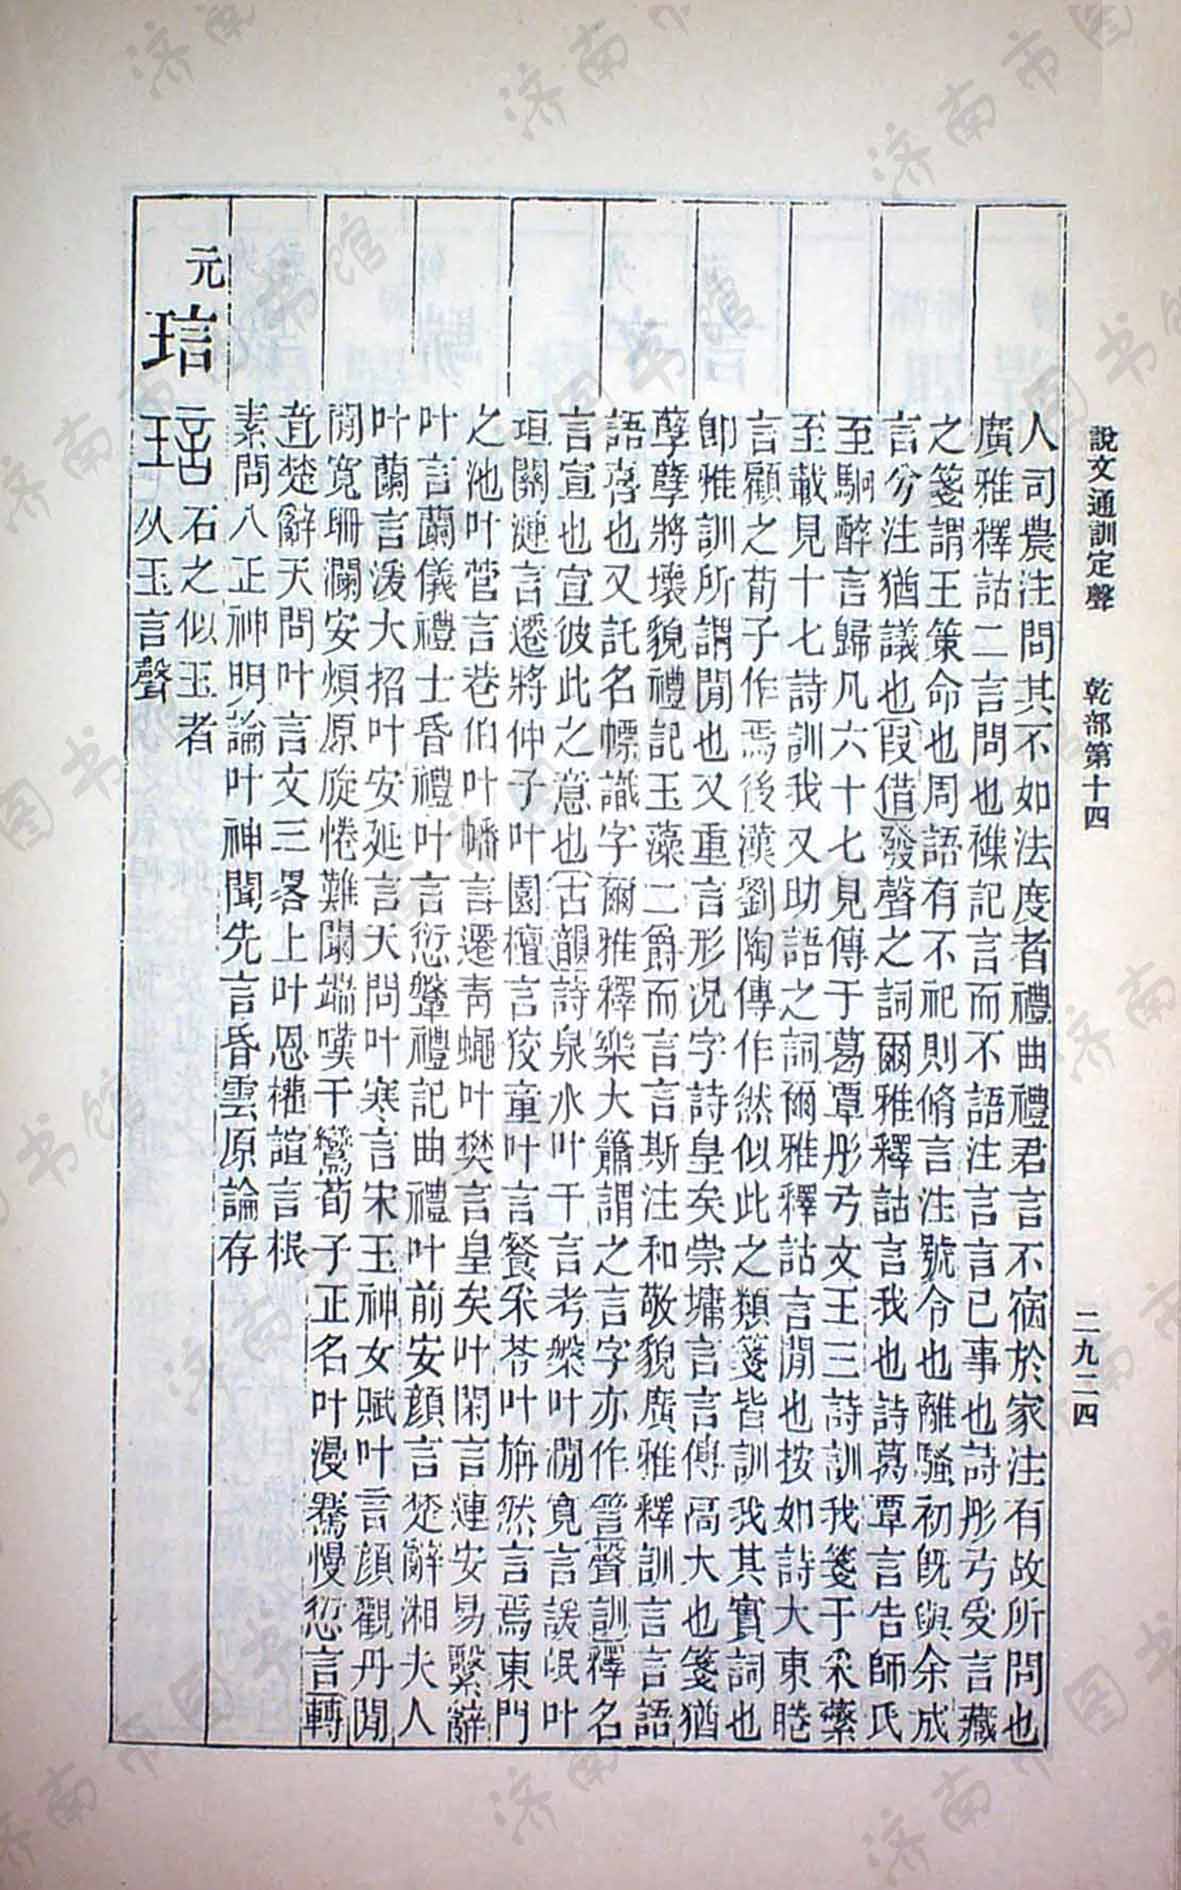 說文通訓定聲　乾部第十四　二九二四
人司農注問其不如法度者禮曲禮君言不宿於家注有故所問也
廣雅釋詁二言問也襍記言而不語注言言已事也詩彤弓受言藏
之箋謂王策命也周語有不祀則脩言注號令也離騷初既與余成
言兮注猶議也假借發聲之詞爾雅釋詁言我也詩葛覃言告師氏
至駉醉言歸凡六十七見傳于葛覃彤弓文王三詩訓我箋于采蘩
至載見十七詩訓我又助語之詞爾雅釋詁言閒也按如詩大東睠
言顧之荀子作焉後漢劉陶傳作然似此之類箋皆訓我其實詞也
卽雅訓所謂閒也又重言形況字詩皇矣崇墉言言傳高大也箋猶
孽孽將壞貌禮記玉藻二爵而言言斯注和敬貌廣雅釋訓言言語
語喜也又託名幖識字爾雅釋樂大簫謂之言字亦作䇾聲訓釋名
言宣也宣彼此之意也古韻詩泉水叶干言考槃叶澗寬言諼氓叶
垣關漣言遷將仲子叶園檀言狡童叶言餐采苓叶旃然言焉東門
之池叶菅言巷伯叶幡言遷青蠅叶樊言皇矣叶閑言連安易繫辭
叶言蘭儀禮士昏禮叶言愆鞶禮記曲禮叶前安顏言楚辭湘夫人
叶蘭言湲大招叶安延言天問叶寒言宋玉神女賦叶言顏觀丹閒
閒寬珊瀾安煩原旋惓難闌端嘆干鸞荀子正名叶漫騫慢愆言轉
音楚辭天問叶言文三畧上叶恩權誼言根
素問八正神明論叶神聞先言昏雲原論存
元
琂　石之似玉者
从玉言聲